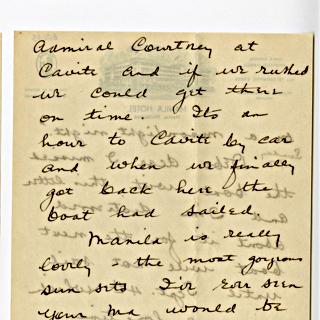 Admiral Courtney at
Cavite and if we rushed
we could get there
on time. Its an
hour to Cavite by car
and when we finally
got back here the
boat had sailed.
Manila is really
lovely - the most gorgeous
sun sets I've ever seen
your ma would be